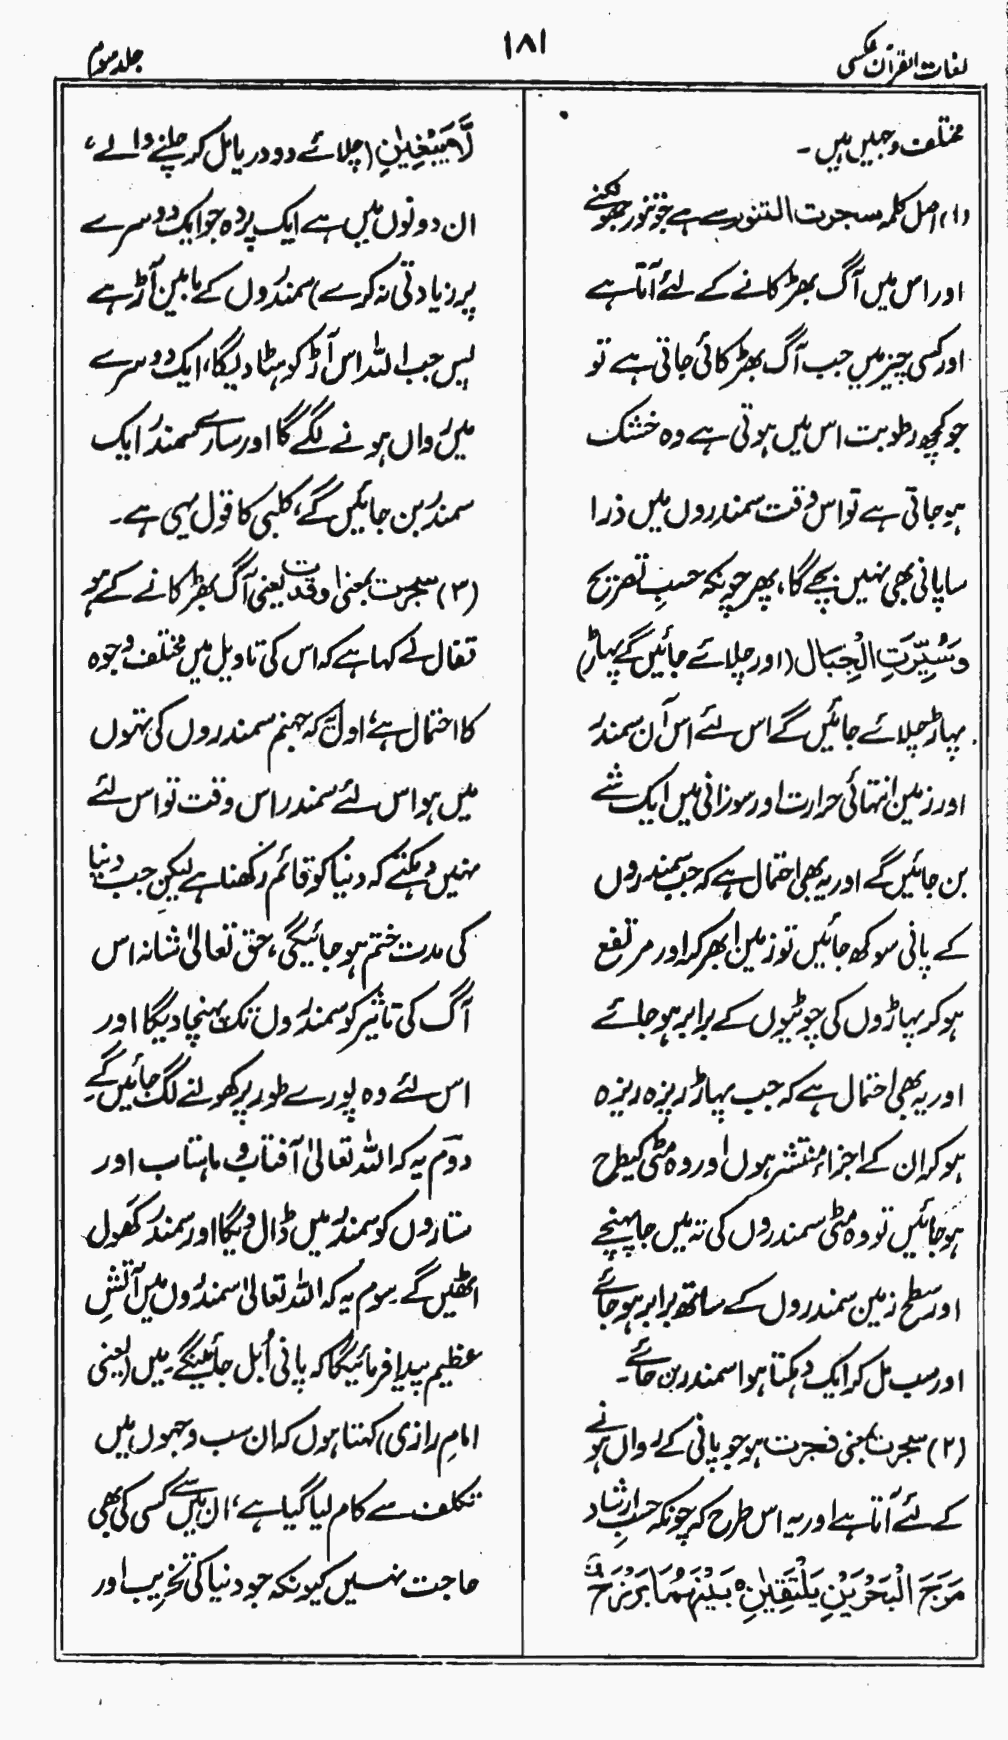 لغات القرآن عکسی
۱۸۱
جلد سوم
مختلف وجہیں ہیں۔
(۱) اصل کلمہ سجرت التنور سے ہے جو تنور جھونکنے
اور اس میں آگ بھڑکانے کے لئے آتا ہے
اور کسی چیز میں جب آگ بھڑکائی جاتی ہے تو
جو کچھ رطوبت اس میں ہوتی ہے وہ خشک
ہو جاتی ہے تو اس وقت سمندروں میں ذرا
سا پانی بھی نہیں بچے گا، پھر چونکہ حسبِ تصریح
وَسُيِّرَتِ الْجِبَال (اور چلائے جائیں گے پہاڑ)
پہاڑ چلائے جائیں گے اس لئے اس آن سمندر
اور زمین انتہائی حرارت اور سوزانی میں ایک شے
بن جائیں گے اور یہ بھی احتمال ہے کہ جب سمندروں
کے پانی سوکھ جائیں تو زمین ابھر کر اور مرتفع
ہو کر پہاڑوں کی چوٹیوں کے برابر ہو جائے
اور یہ بھی احتمال ہے کہ جب پہاڑ ریزہ ریزہ
ہو کر ان کے اجزاء منتشر ہوں اور وہ مٹی کیطرح
ہو جائیں تو وہ مٹی سمندروں کی تہ میں جا پہنچے
اور سطح زمین سمندروں کے ساتھ برابر ہو جائے
اور سب مل کر ایک دہکتا ہوا سمندر بن جائے۔
(۲) سجرت بمعنی فجرت ہو جو پانی کے رواں ہونے
کے لئے آتا ہے اور یہ اس طرح کہ چونکہ حسبِ ارشاد
مَرَجَ الْبَحْرَيْنِ يَلْتَقِيٰنِ ہ بَيْنَهُمَا بَرْزَخٌ
لَّا يَبْغِيٰنِ (چلائے دو دریا مل کر چلنے والے،
ان دونوں میں ہے ایک پردہ جو ایک دوسرے
پر زیادتی نہ کرے) سمندروں کے مابین آڑ ہے
پس جب اللہ اس آڑ کو ہٹا دیگا، ایک دوسرے
میں رواں ہونے لگے گا اور سارے سمندر ایک
سمندر بن جائیں گے، کلبی کا قول یہی ہے۔
(۳) سجرت بمعنی اوقدت یعنی آگ بھڑکانے کے ہو
قفال نے کہا ہے کہ اس کی تاویل میں مختلف وجوہ
کا احتمال ہے، اول یہ کہ جہنم سمندروں کی تہوں
میں ہو اس لئے سمندر اس وقت تو اس لئے
نہیں دہکتے کہ دنیا کو قائم رکھنا ہے لیکن جب دنیا
کی مدت ختم ہو جائیگی، حق تعالیٰ شانہ اس
آگ کی تاثیر کو سمندروں تک پہنچا دیگا اور
اس لئے وہ پورے طور پر کھولنے لگ جائیں گے۔
دوّم یہ کہ اللہ تعالیٰ آفتاب و ماہتاب اور
ستاروں کو سمندر میں ڈال دیگا اور سمندر کھول
اٹھیں گے۔ سوم یہ کہ اللہ تعالیٰ سمندروں میں آتشِ
عظیم پیدا فرمائیگا کہ پانی اُبل جائینگے۔ میں (یعنی
امامِ رازی) کہتا ہوں کہ ان سب وجہوں میں
تکلف سے کام لیا گیا ہے، ان میں سے کسی کی بھی
حاجت نہیں کیونکہ جو دنیا کی تخریب اور